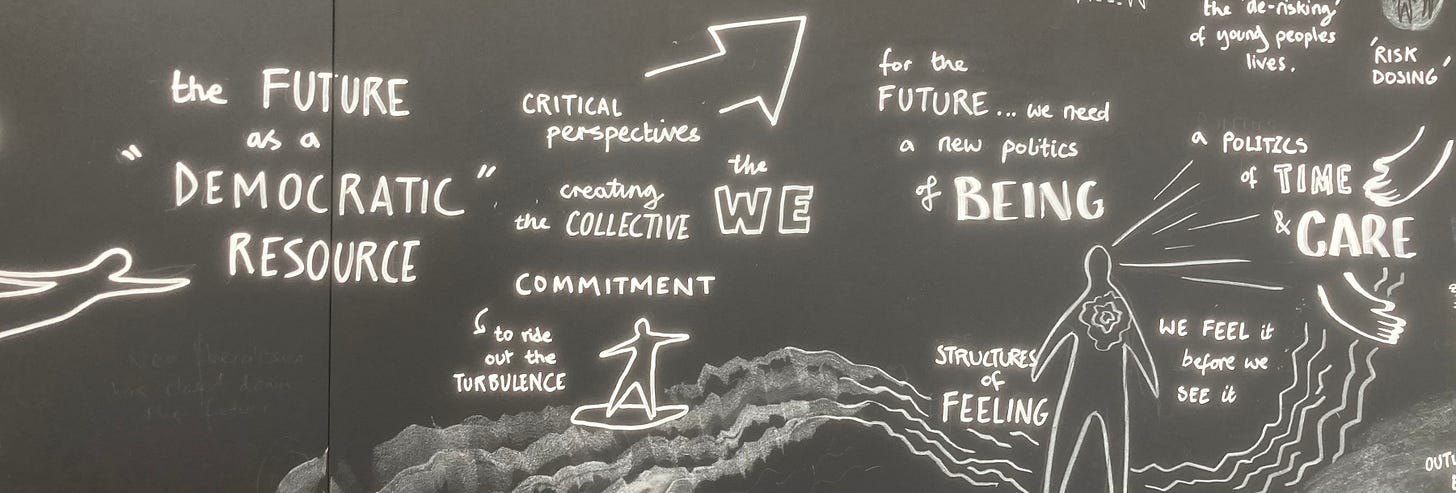 the FUTURE
as a
"DEMOCRATIC"
RESOURCE
CRITICAL
perspectives
creating
the COLLECTIVE
the
WE
COMMITMENT
to ride
out the
TURBULENCE
for the
FUTURE... we need
a new politics
of BEING
the 'de-risking'
of young peoples
lives.
'RISK
DOSING'
a POLITICS
of TIME
& CARE
STRUCTURES
of
FEELING
WE FEEL it
before we
SEE it